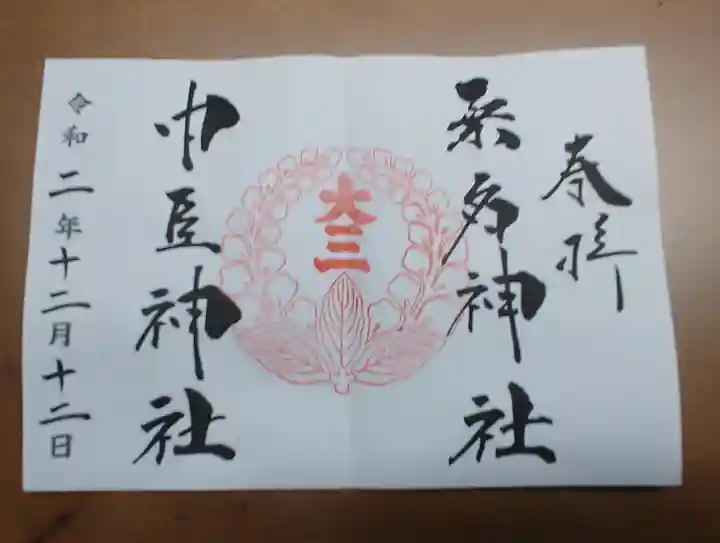 奉拝
桑多神社
大三
中臣神社
令和二年十二月十二日